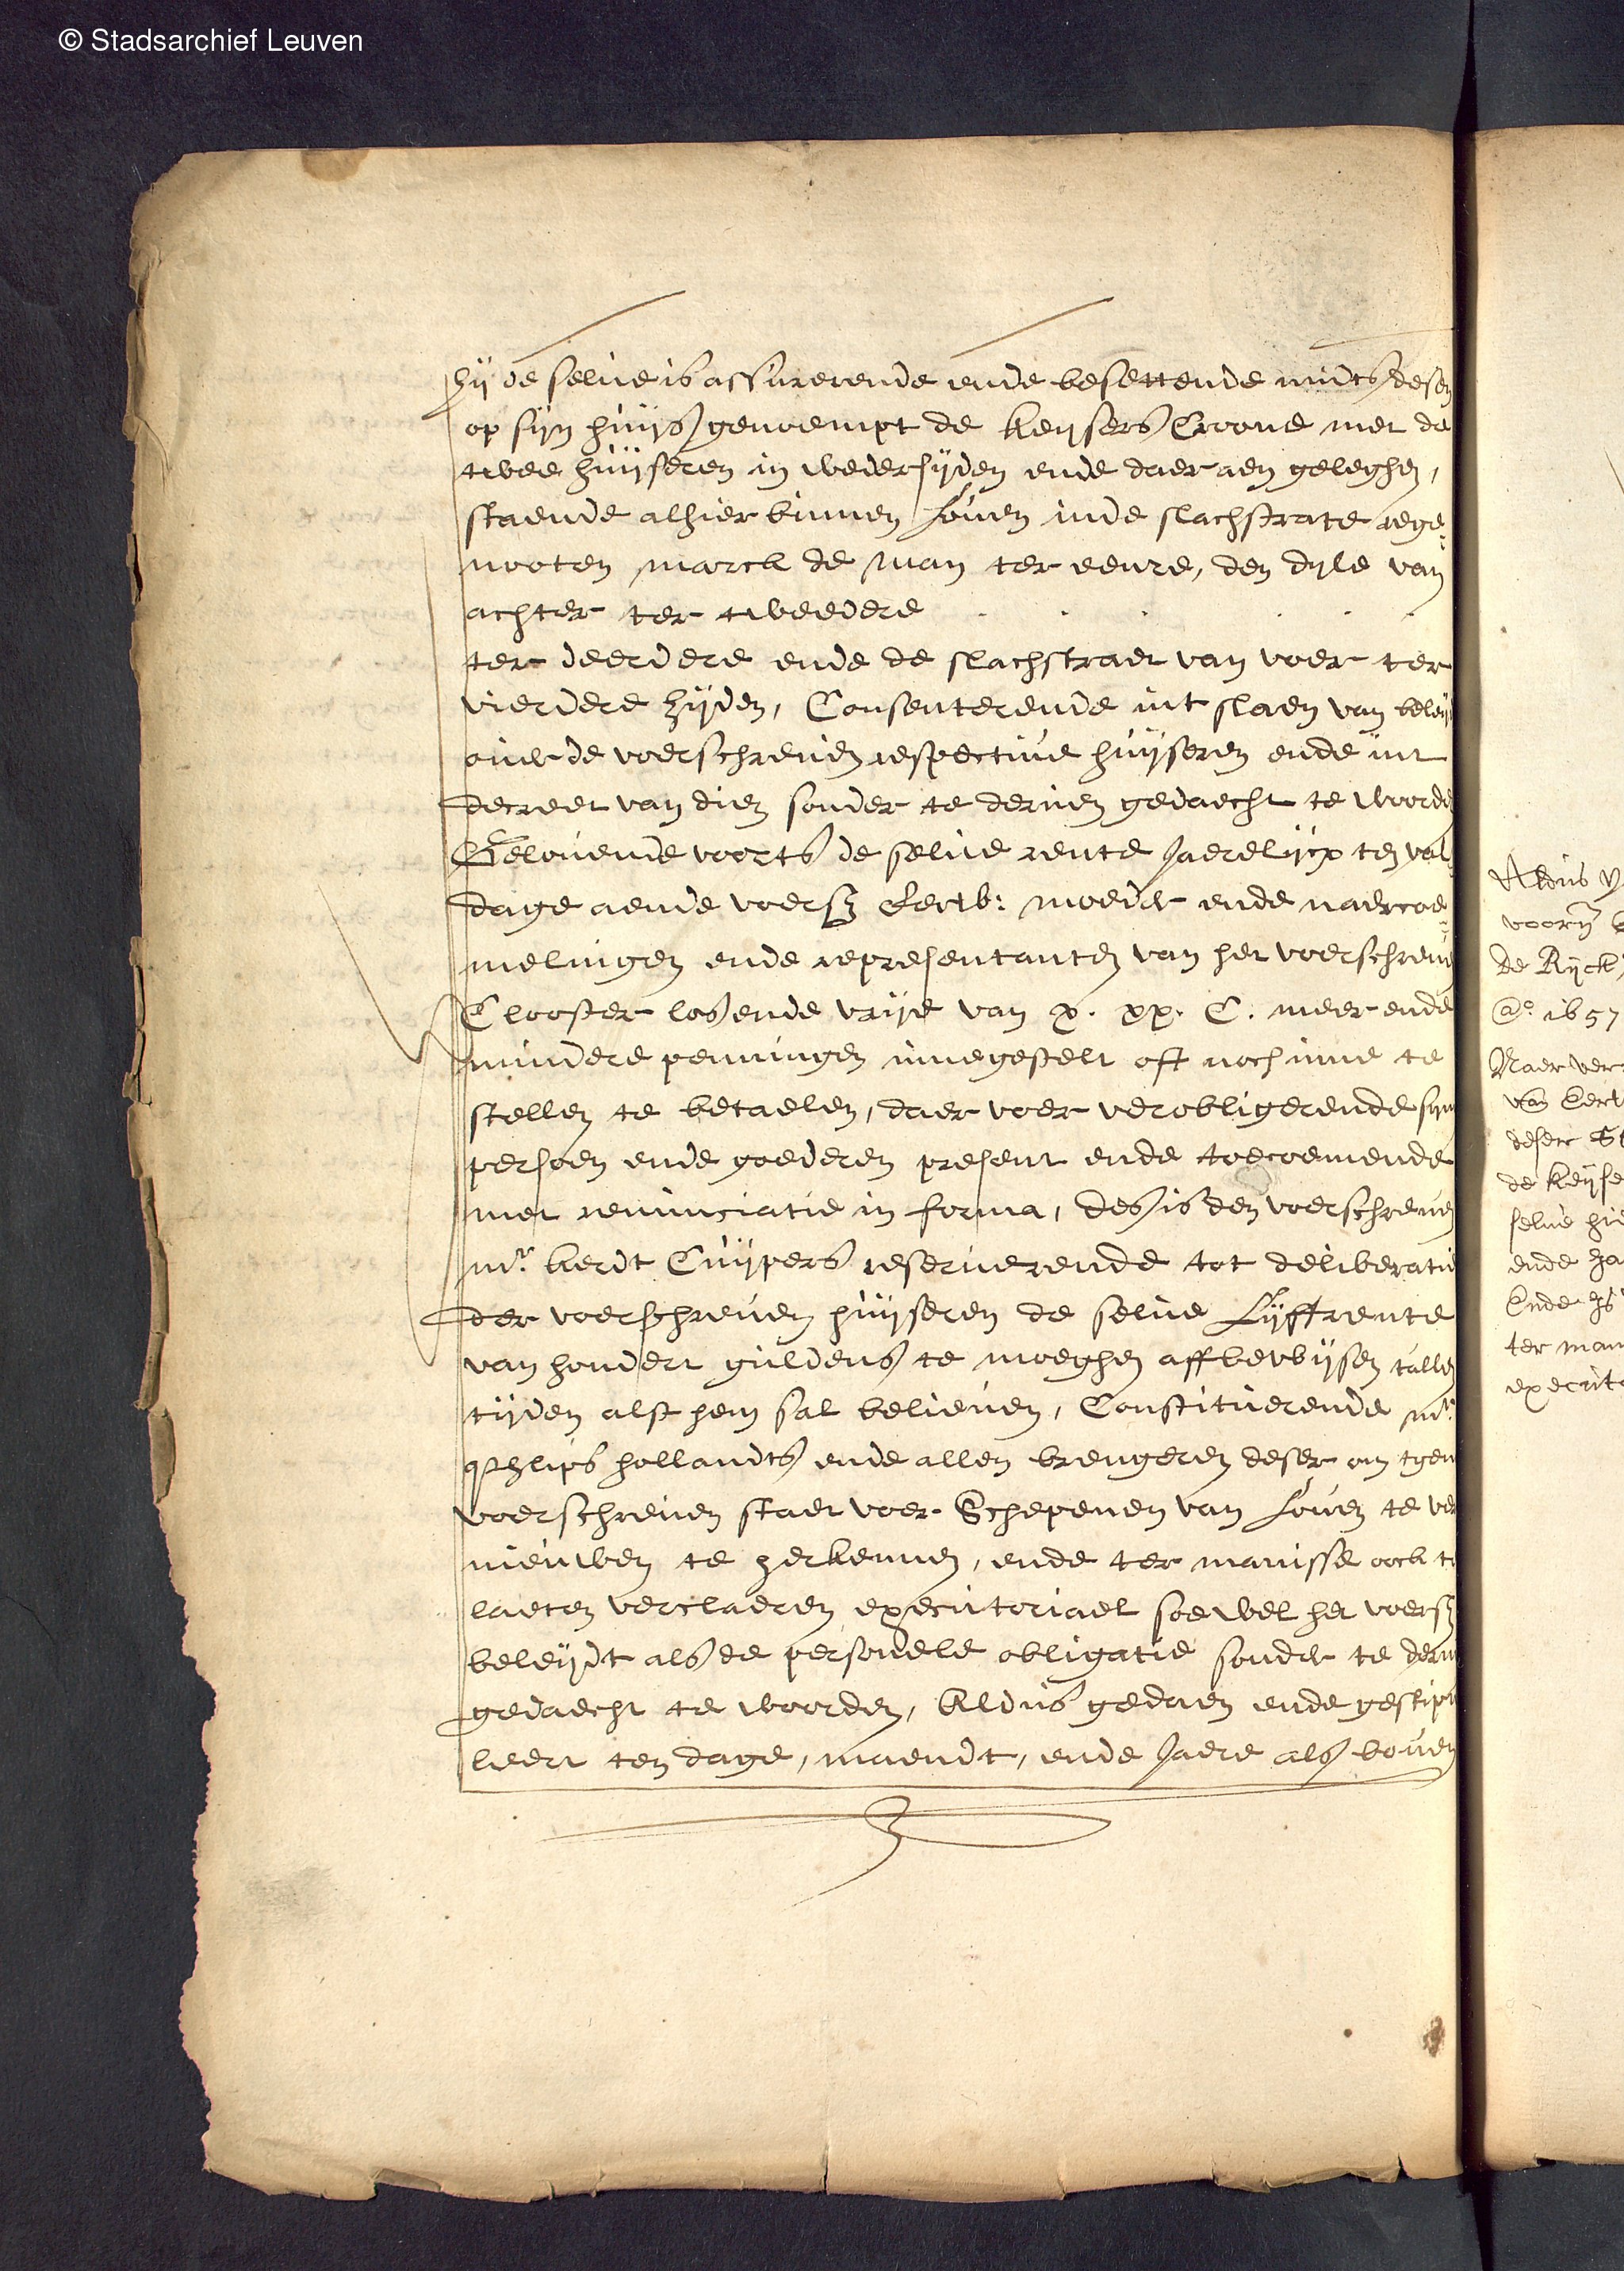 © Stadsarchief Leuven
hij de selue is assurerende ende besettende midts desen
op sijn huijs genoempt de keijsers Croone met de
twee huijseren in wedersijden ende daer aen geleghen,
staende alhier binnen Loven inde slachstrate rege-
nooten marck de man ter eenre, den dijle van
achter ter tweedere
ter deerdere ende de slachstraet van voer ter
vierdere zijden, Consenterende int slaen van beleij
ouer de voerschreuen respective huijseren ende int
decreet van dien sonder te deruen gedaecht te woorde
Gelouende voorts de selue rente Jaerelijcx ten val
dage aende voersz Eerw: moeder ende naercoe-
melingen ende representanten van het voerschreue
Clooster los ende vrije van x. xx. C. meer ende
mindere penningen innegestelt oft noch inne te
stellen te betaelen, daer voer verobligerende sijn
persoen ende goederen present ende toecoemende
met renunciatie in forma, des is den voerschreuen
mr. Aerdt Cuijpers reseruerende tot deliberatie
der voerschreuen huijseren de selue Lijffrente
van hondert guldens te moeghen affbewijsen tallen
tijden alst hem sal belieuen, Constituerende mr.
Philips hollandts ende allen brengeren deser om tgen
voerschreuen staet voer Schepenen van Loven te ver
nieuwen te herkennen, ende ter manisse oock te
laeten verclaeren executoriael soe wel het voersz
beleijdt als de personele obligatie sonder te deru
gedaecht te woorden, Aldus gedaen ende gestipu
leert ten dage, maendt, ende Jaere als bouen
Aldus
voorn
de Rijck
Ao. 1657
Naer ver
van
deser St
de keijse
selue hie
ende
Ende
ter man
executo